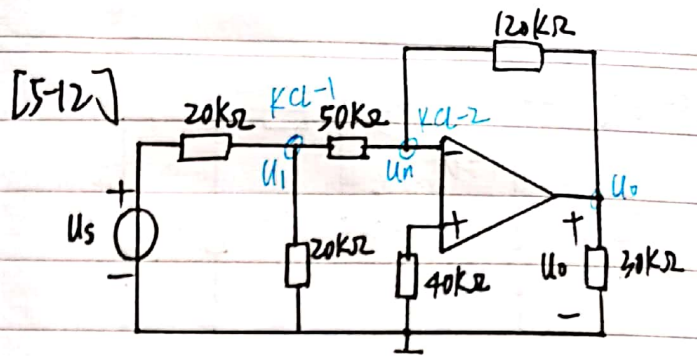 120KΩ
[5-12]
20KΩ KCL-1 50KΩ KCL-2
U1 Un Uo
+ Us -
20KΩ
- +
40KΩ
+ Uo - 30KΩ